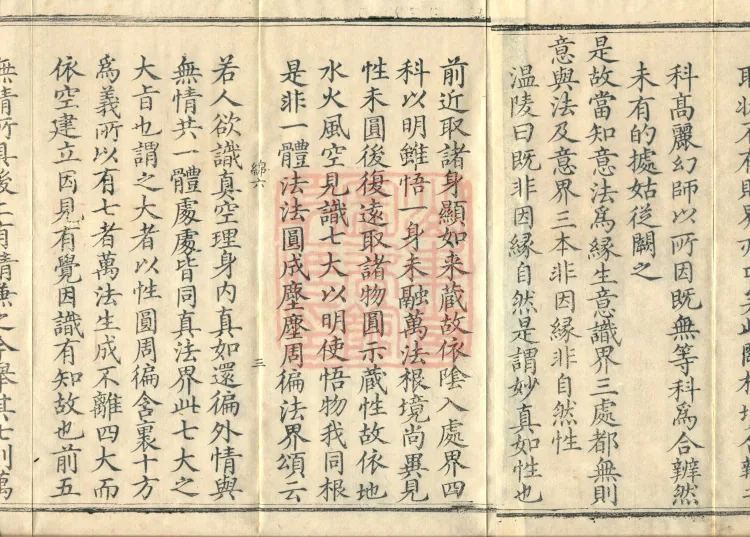 科髙麗幻師以所因既無等科爲合辨然
未有的據姑從闕之
是故當知意法爲緣生意識界三處都無則
意與法及意界三本非因緣非自然性
温陵曰既非因緣自然是謂妙真如性也
前近取諸身顯如来蔵故依陰入處界四
科以明雖悟一身未融萬法根境尚異見
性未圓後復遠取諸物圓示蔵性故依地
水火風空見識七大以明使悟物我同根
是非一體法法圓成塵塵周徧法界頌云
綿六 三
若人欲識真空理身内真如還徧外情與
無情共一體處處皆同真法界此七大之
大旨也謂之大者以性圓周徧含裹十方
爲義所以有七者萬法生成不離四大而
依空建立因見有覺因識有知故也前五
無情所具後二有情兼之今舉其七則萬